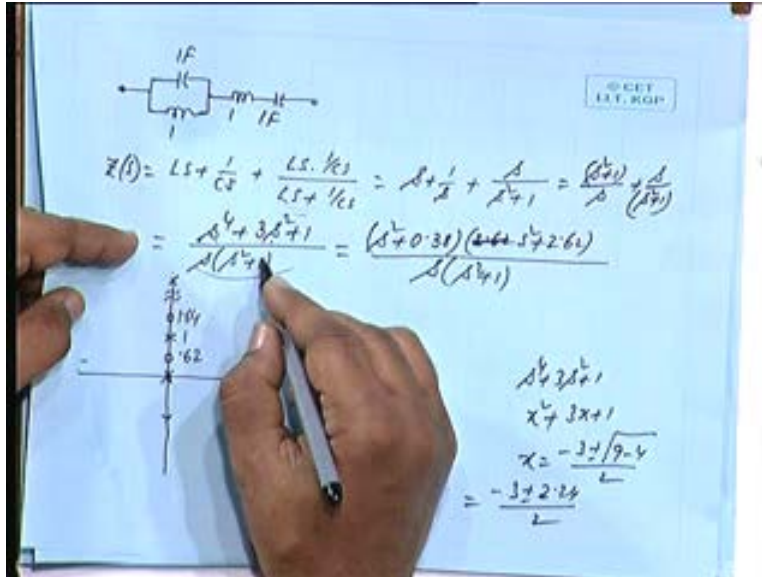 1F
© CET
I.I.T. KGP
1
1 1F
Z(s) = LS + 1/CS + (LS · 1/CS)/(LS + 1/CS) = s + 1/s + s/(s²+1) = (s²+1)/s + s/(s²+1)
= (s⁴ + 3s²+1)/(s(s²+1 = (s²+0.38)(s²+2.62)/(s(s²+1)
1
.62
s⁴+3s²+1
x²+3x+1
x = (-3±√9-4)/2
= (-3±2.24)/2